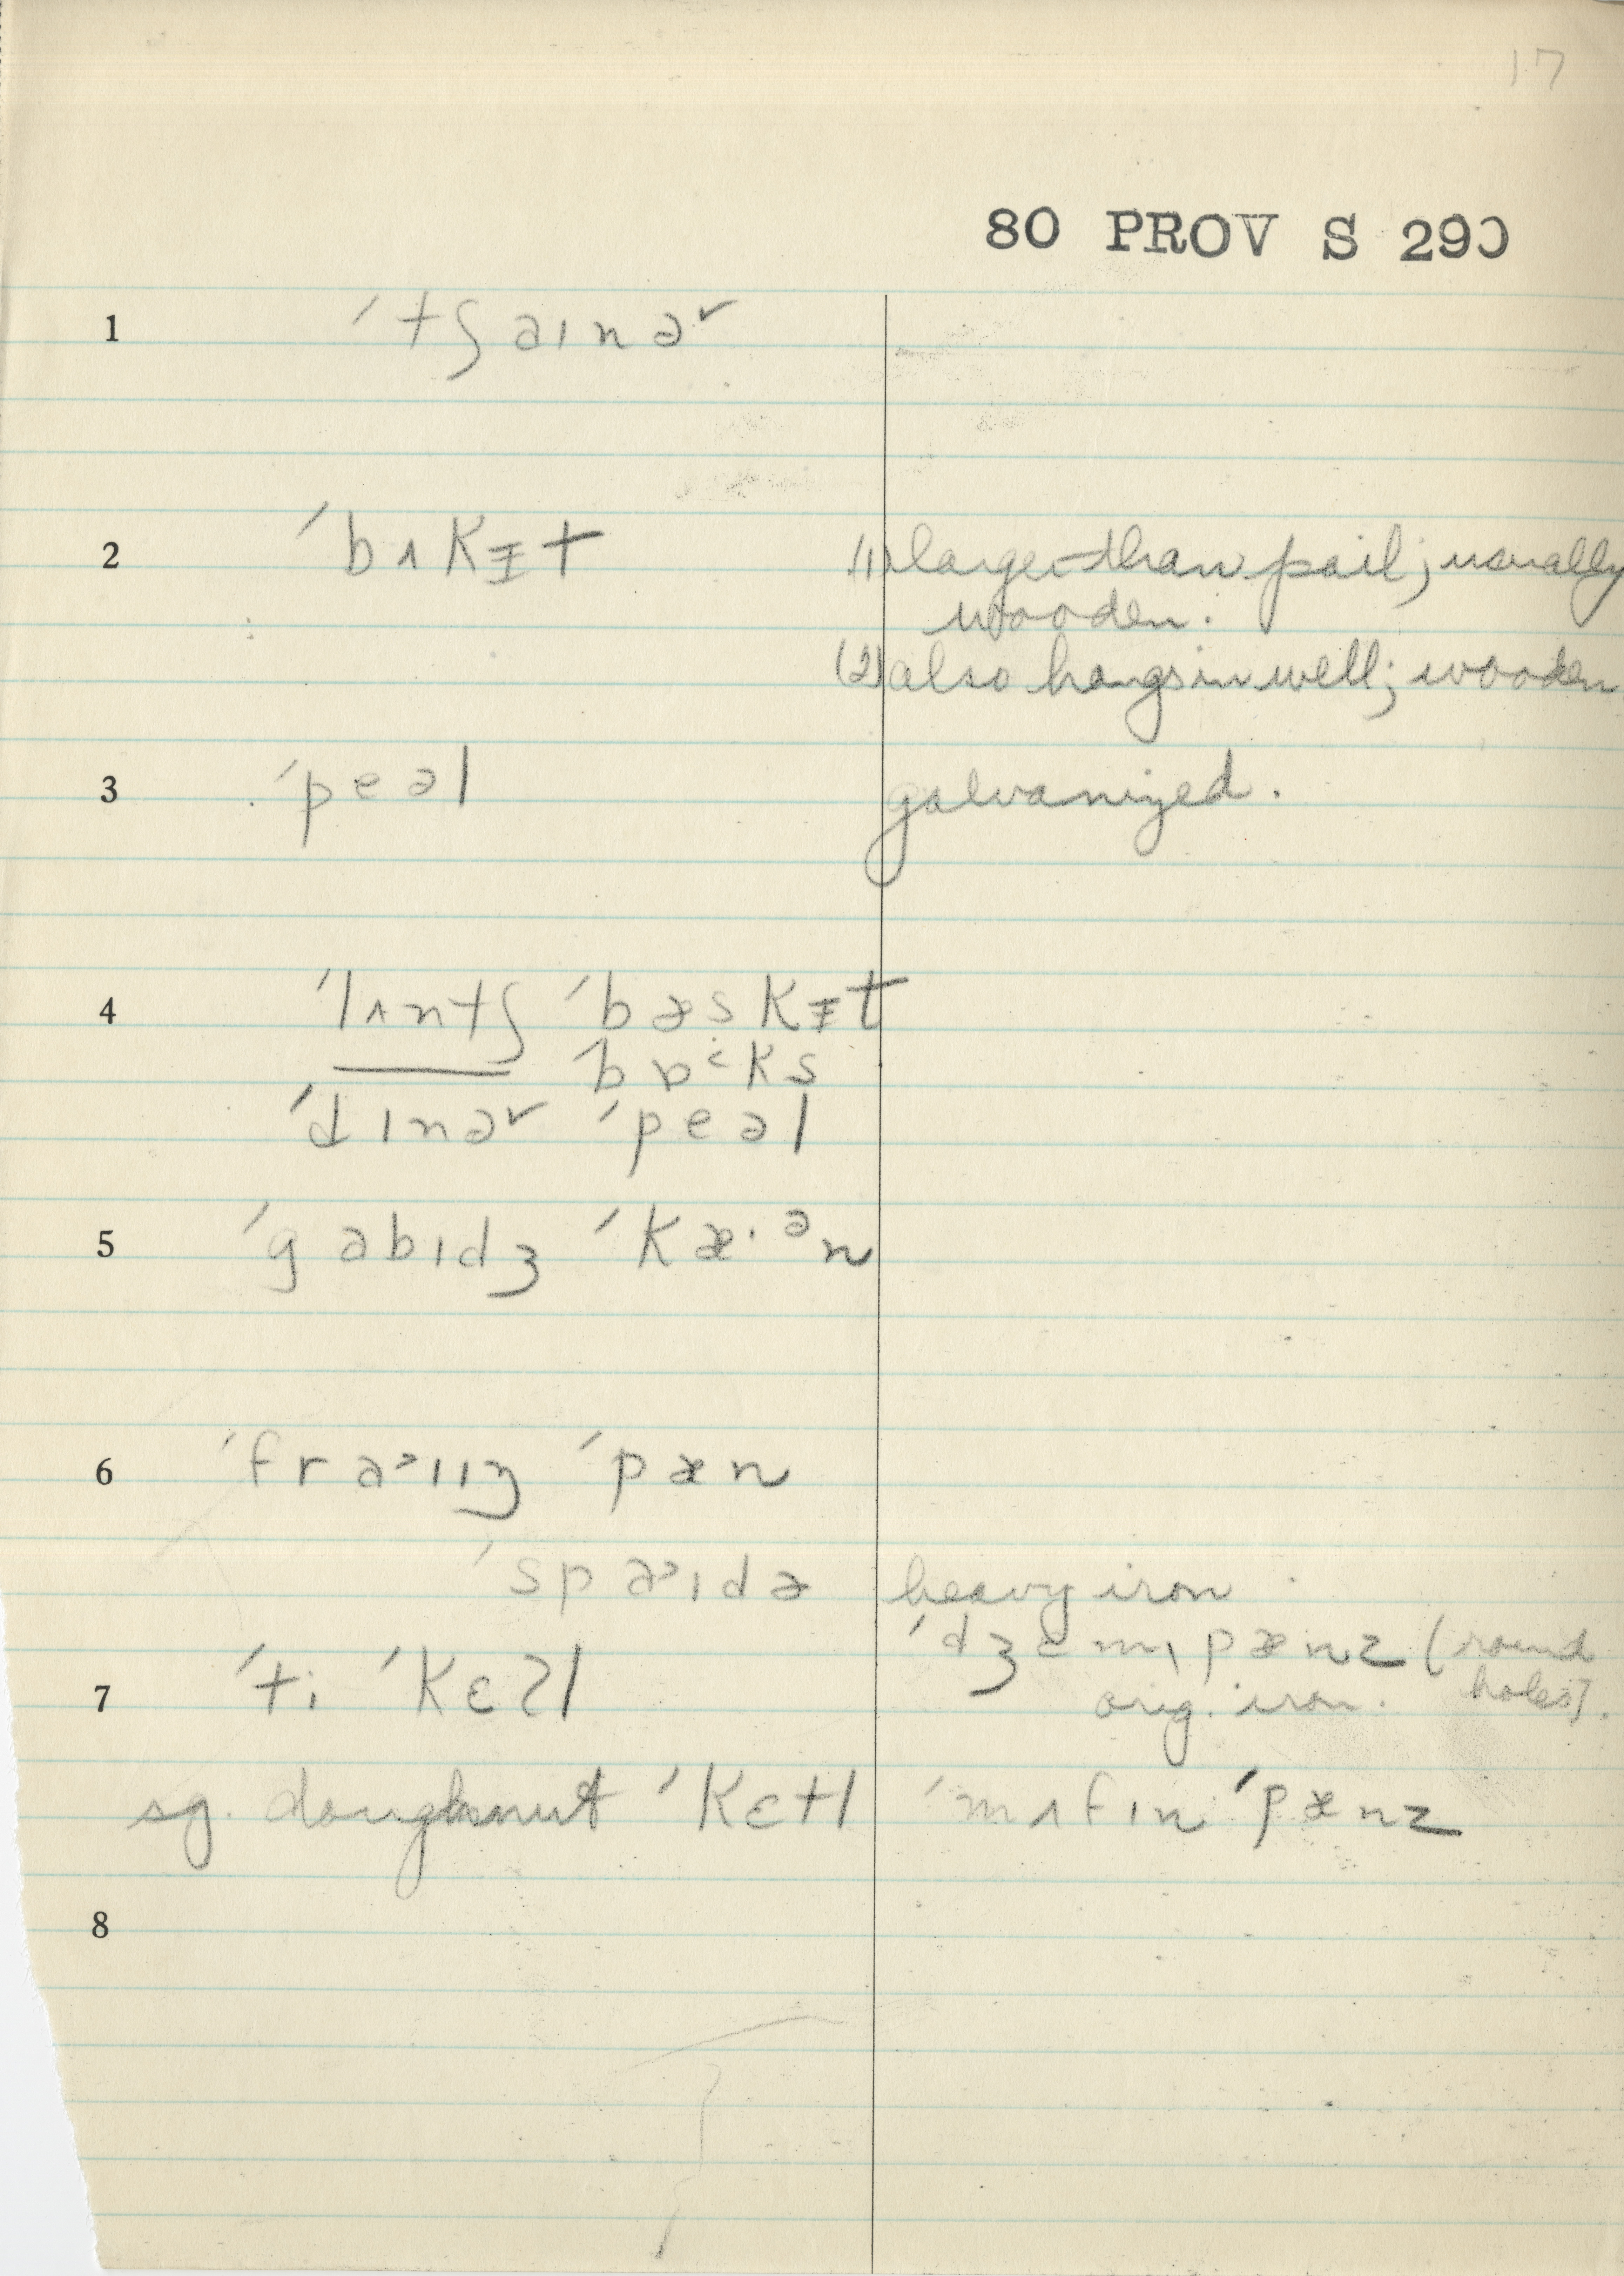 17
80 PROV S 290
1 ˈtʃaɪnəʳ
2 ˈbʌkɪ̵t (1) larger than pail; usually
wooden.
(2) also hangs in well; wooden
3 ˈpeəl galvanized.
4 ˈlʌntʃ ˈbæskɪ̵t
—— ˈbɒ˂ks
ˈdɪnəʳ ˈpeəl
5 ˈgabɪdʒ ˈkæ·ᵊn
6 ˈfra˃ɪɪŋ ˈpæn
ˈspa˃ɪdə heavy iron
ˈdʒɛmˌpænz (round
7 ˈti ˈkɛʔl orig. iron. holes).
sg. doughnut ˈkɛtl ˈmʌfɪn ˈpænz
8